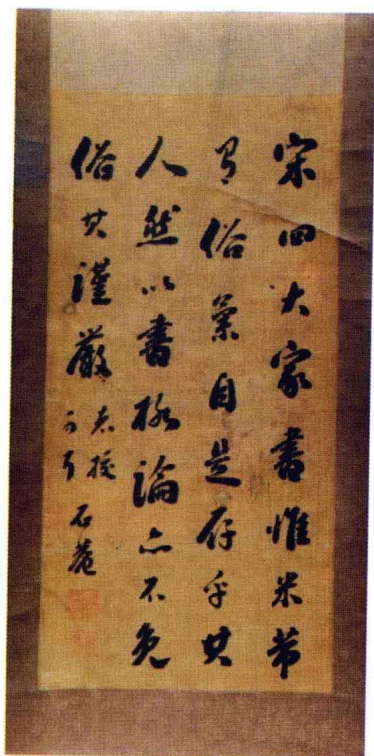 宋四大家書惟米芾
有俗氣自是存乎其
人然以書格論亦不免
俗其謹嚴
石菴